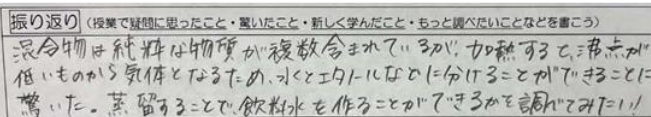 振り返り（授業で疑問に思ったこと・驚いたこと・新しく学んだこと・もっと調べたいことなどを書こう）
混合物は純粋な物質が複数含まれているが、加熱すると、沸点が
低いものから気体となるため、水とエタノールなどに分けることができることに
驚いた。蒸留することで、飲料水を作ることができるかを調べてみたい！